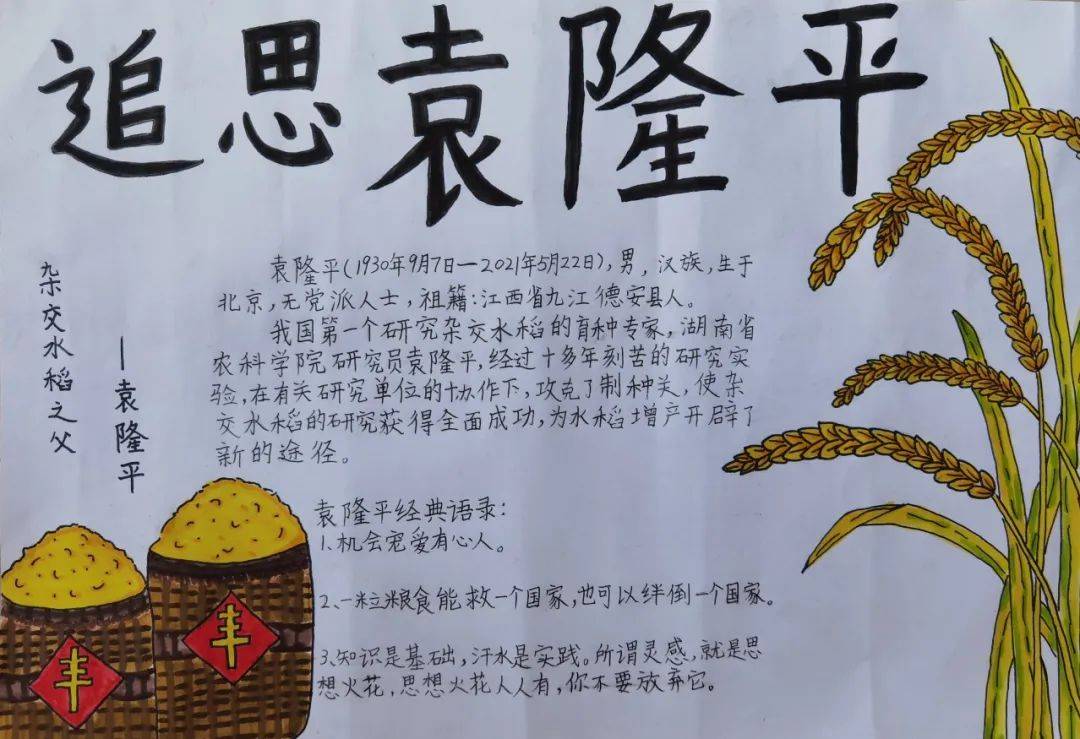 追思袁隆平
杂交水稻之父
—袁隆平
袁隆平(1930年9月7日—2021年5月22日),男,汉族,生于
北京,无党派人士,祖籍:江西省九江德安县人。
我国第一个研究杂交水稻的育种专家,湖南省
农科学院研究员袁隆平,经过十多年刻苦的研究实
验,在有关研究单位的协作下,攻克了制种关,使杂
交水稻的研究获得全面成功,为水稻增产开辟了
新的途径。
袁隆平经典语录:
1、机会宠爱有心人。
2、一粒粮食能救一个国家,也可以绊倒一个国家。
3、知识是基础,汗水是实践。所谓灵感,就是思
想火花,思想火花人人有,你不要放弃它。
丰
丰